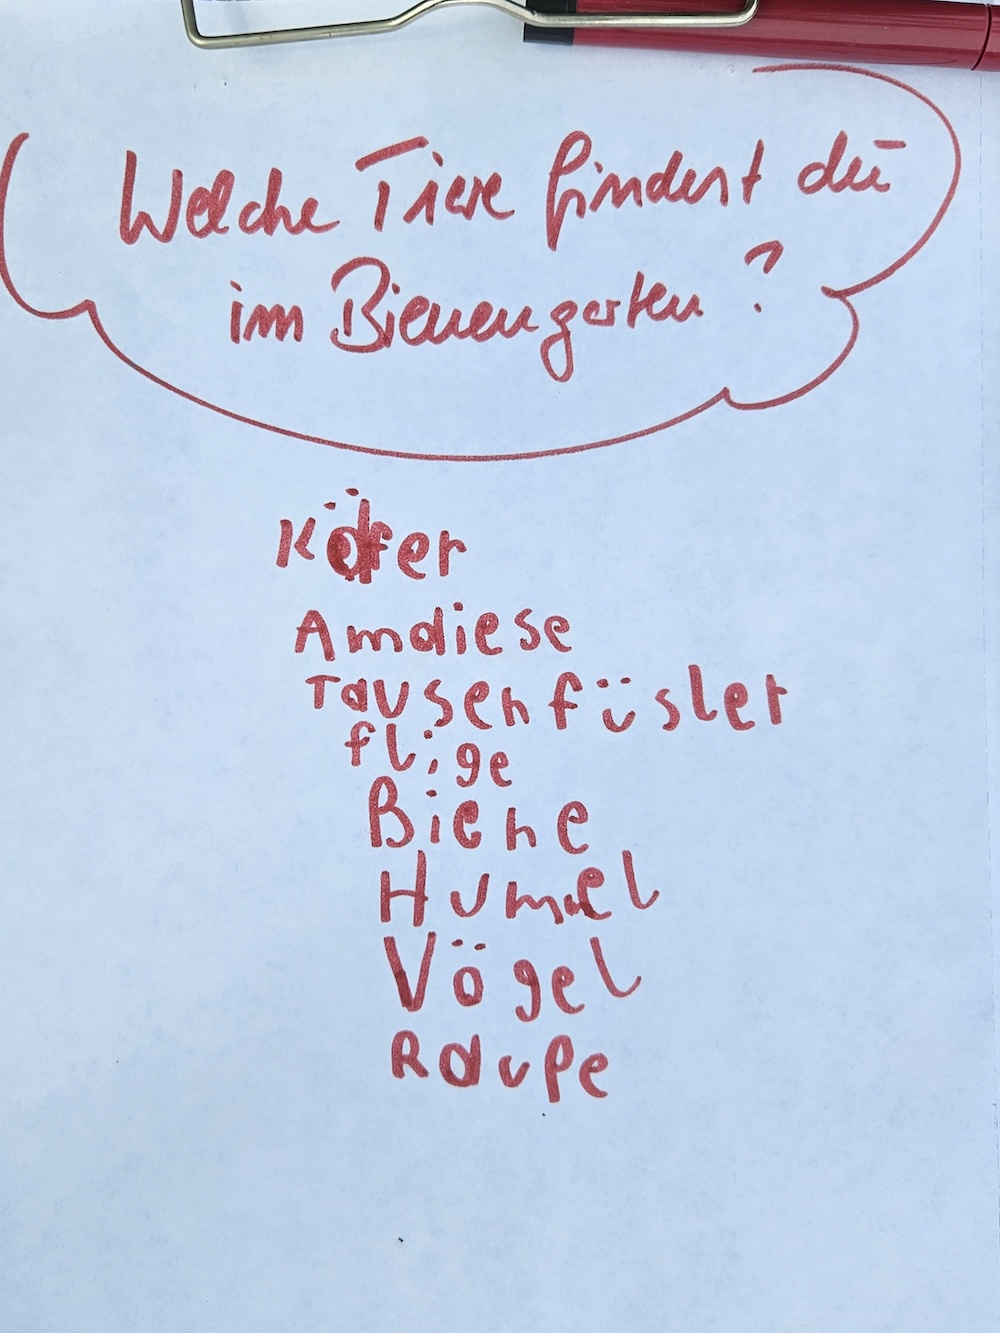 Welche Tiere findest du
im Bienengarten?
Käfer
Amdiese
Tausenfüsler
flige
Biene
Humel
Vögel
Raupe